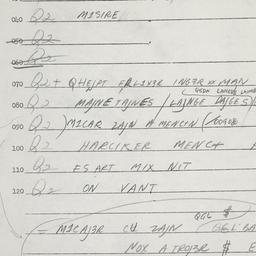 040 Q2 MISIRE
050 Q2
060 Q2
070 Q2 + QHEIPT INBER XX MAN
080 Q2 MAJNETAJNES / LAJNGE DAJGES
090 Q2 ) MICAR ZAJN A MENCIN (
100 Q2 HARCIKER MENCA
110 Q2 ES ART MIX NIT
120 Q2 ON VANT
QGL $
= MICAJ3R CU ZAJN GEL BA
NOX A TROJ3R $ E